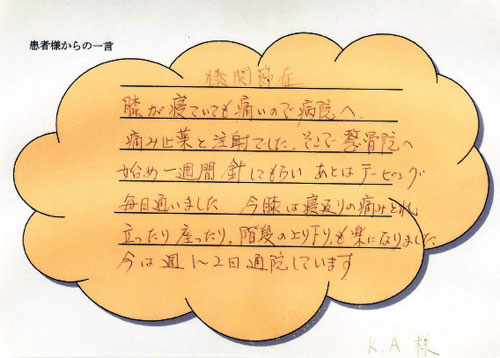 患者様からの一言
膝関節症
膝が寝ていても痛いので病院へ
痛み止薬と注射でした。そこで整骨院へ
始め一週間針してもらい あとはテーピング
毎日通いました 今膝は寝返りの痛みとれ
立ったり座ったり。階段の上り下りも楽になりました
今は週1〜2日通院しています
K.A様